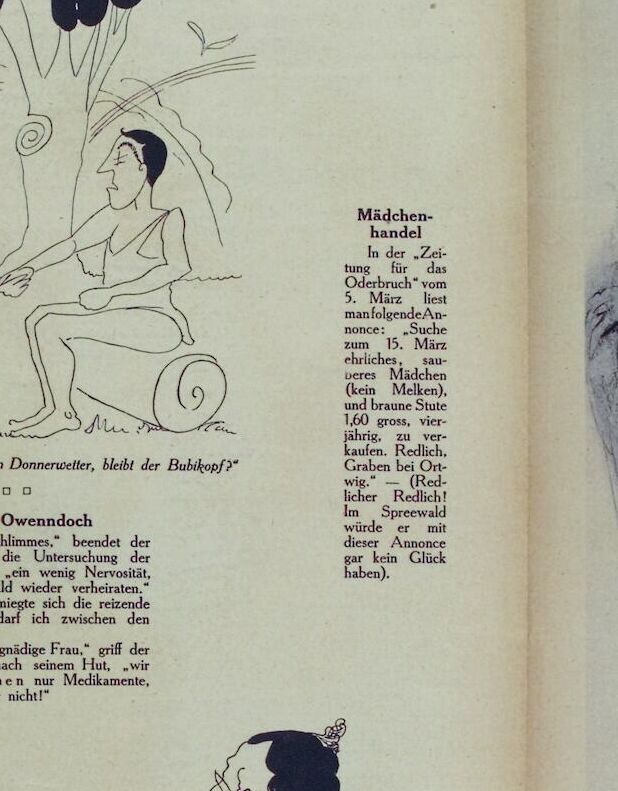 Donnerwetter, bleibt der Bubikopf?"
Owenndoch
hlimmes," beendet der
die Untersuchung der
„ein wenig Nervosität,
ld wieder verheiraten."
miegte sich die reizende
darf ich zwischen den
gnädige Frau," griff der
nach seinem Hut, „wir
en nur Medikamente,
nicht!"
Mädchen-
handel
In der „Zei-
tung für das
Oderbruch" vom
5. März liest
man folgende An-
nonce: „Suche
zum 15. März
ehrliches, sau-
beres Mädchen
(kein Melken),
und braune Stute
1,60 gross, vier-
jährig, zu ver-
kaufen. Redlich,
Graben bei Ort-
wig." — (Red-
licher Redlich!
Im Spreewald
würde er mit
dieser Annonce
gar kein Glück
haben).